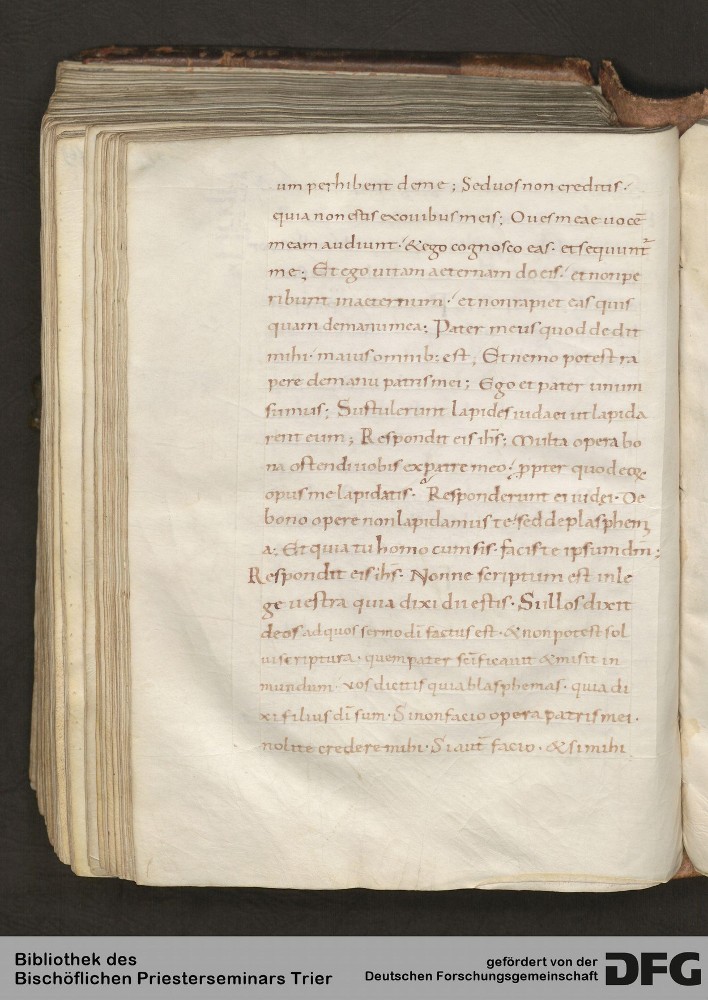 um perhibent de me; Sed uos non creditis.
quia non estis ex ouibus meis; Oues meae uocē
meam audiunt. & ego cognosco eas. et sequunt᷑
me; Et ego uitam aeternam do eis. et non pe
ribunt in aeternum. et non rapiet eas quis
quam de manu mea; Pater meus quod dedit
mihi. maius omnib; est; Et nemo potest ra
pere de manu patris mei; Ego et pater unum
sumus; Sustulerunt lapides iudaei ut lapida
rent eum; Respondit eis ihs̄; Multa opera bo
na ostendi uobis ex patre meo. ꝓpter quod eoꝝ
opus me lapidatis. Responderunt ei iudęi. De
bono opere non lapidamus te. sed de plasphem
a; Et quia tu homo cum sis. facis te ipsum dm̄;
Respondit eis ihs̄. Nonne scriptum est in le
ge uestra quia dixi dii estis. Si illos dixit
deos ad quos sermo dī factus est. & non potest sol
ui scriptura. quem pater scīficauit & misit in
mundum. vos dicitis quia blasphemas. quia di
xi filius dī sum. Si non facio opera patris mei.
nolite credere mihi. Si aut̄ facio. & si mihi
Bibliothek des
Bischöflichen Priesterseminars Trier
gefördert von der
Deutschen Forschungsgemeinschaft
DFG